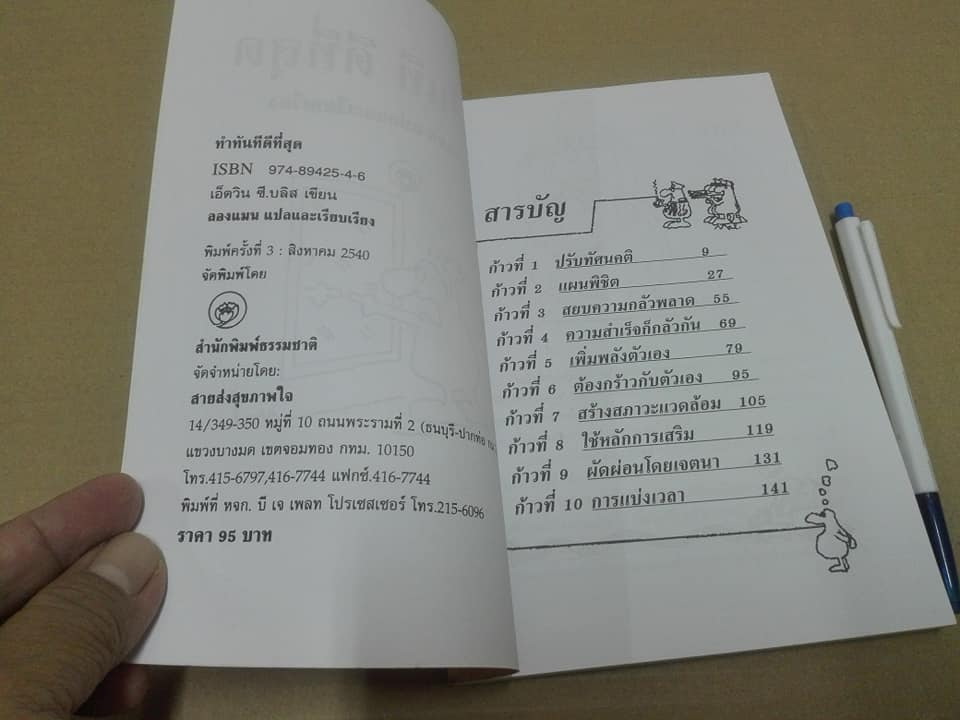 ทำทันทีดีที่สุด
ISBN 974-89425-4-6
เอ็ดวิน ซี.บลิส เขียน
ลองแมน แปลและเรียบเรียง
พิมพ์ครั้งที่ 3 : สิงหาคม 2540
จัดพิมพ์โดย
สำนักพิมพ์ธรรมชาติ
จัดจำหน่ายโดย:
สายส่งสุขภาพใจ
14/349-350 หมู่ที่ 10 ถนนพระรามที่ 2 (ธนบุรี-ปากท่อ
แขวงบางมด เขตจอมทอง กทม. 10150
โทร.415-6797,416-7744 แฟกซ์.416-7744
พิมพ์ที่ หจก. บี เจ เพลท โปรเซสเซอร์ โทร.215-6096
ราคา 95 บาท
สารบัญ
ก้าวที่ 1 ปรับทัศนคติ 9
ก้าวที่ 2 แผนพิชิต 27
ก้าวที่ 3 สยบความกลัวพลาด 55
ก้าวที่ 4 ความสำเร็จก็กลัวกัน 69
ก้าวที่ 5 เพิ่มพลังตัวเอง 79
ก้าวที่ 6 ต้องกร้าวกับตัวเอง 95
ก้าวที่ 7 สร้างสภาวะแวดล้อม 105
ก้าวที่ 8 ใช้หลักการเสริม 119
ก้าวที่ 9 ผัดผ่อนโดยเจตนา 131
ก้าวที่ 10 การแบ่งเวลา 141